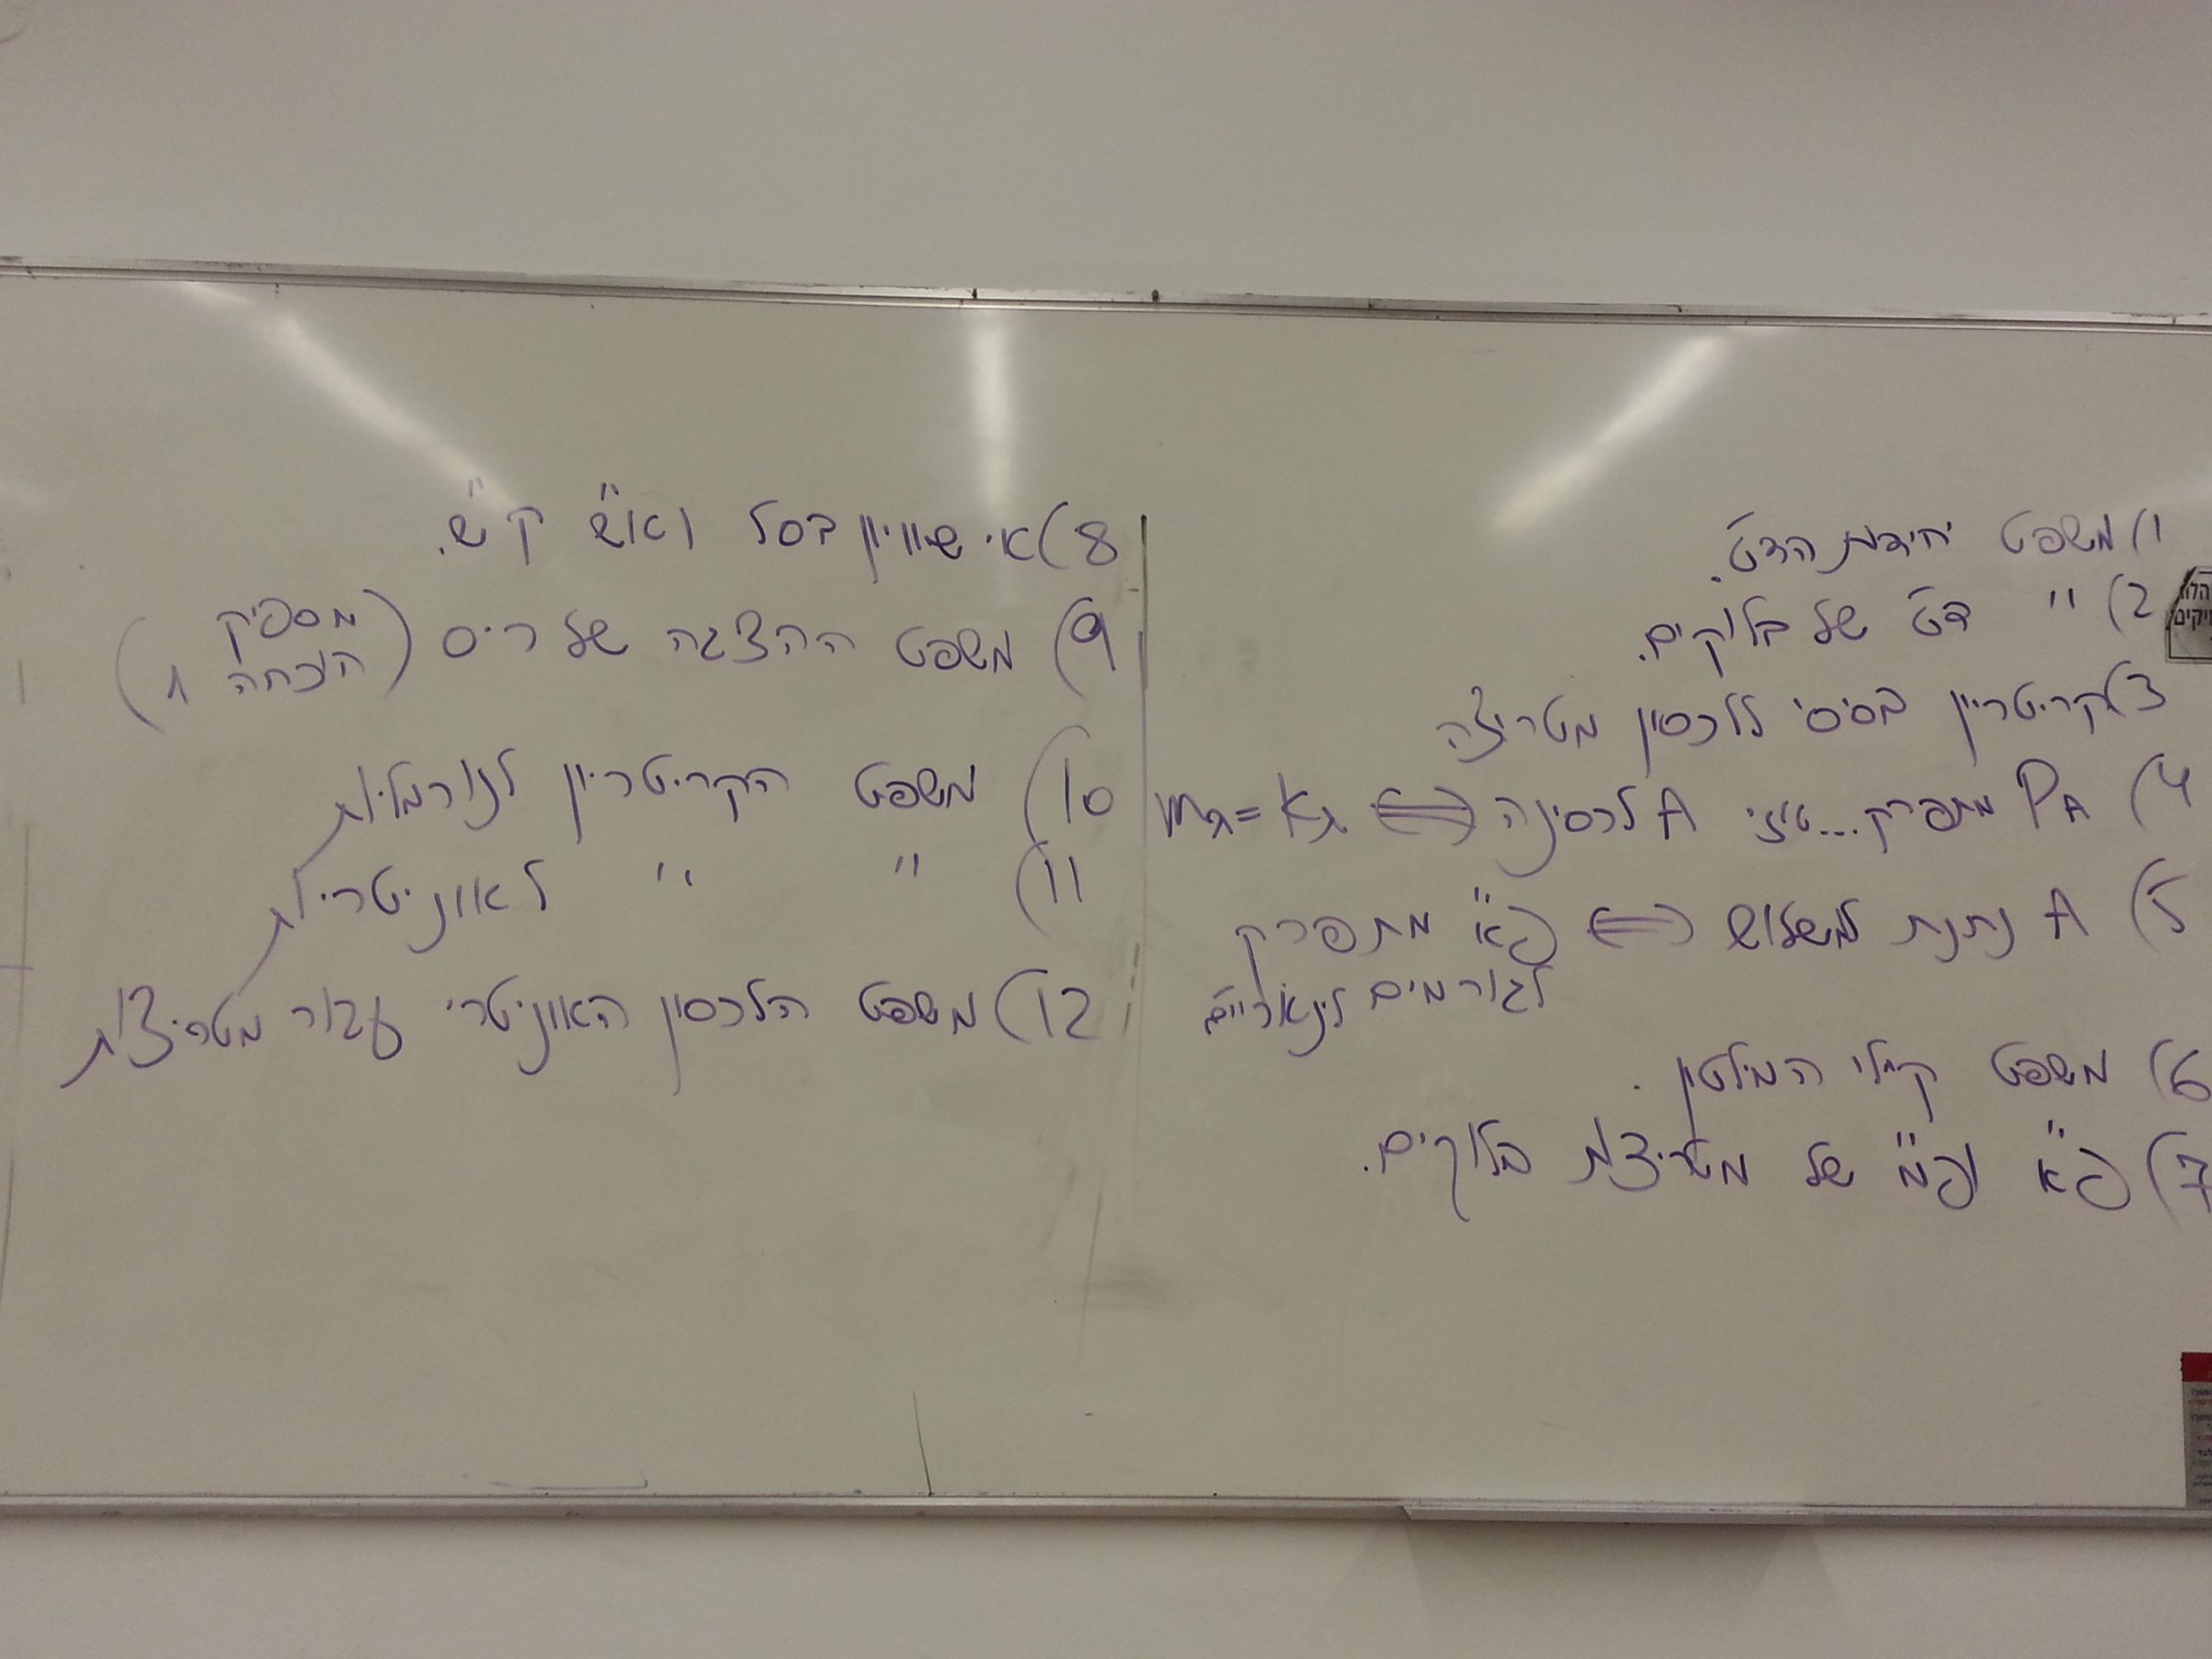 1) משפט יחידות הדט'.
2) " דט' של בלוקים.
3) קריטריון בסיסי ללכסון מטריצה
4) P_A מתפרק... אזי A לכסינה ⟺ m_λ = k_λ
5) A ניתנת לשילוש ⟺ פ"א מתפרק
לגורמים לינאריים
6) משפט קיילי המילטון.
7) פ"א ופ"מ של מטריצת בלוקים.
8) אי שוויון בסל ואש"ק"ש.
9) משפט ההצגה של ריס (מספיק
הוכחה 1)
10) משפט הקריטריון לנורמליות
11) " " לאוניטריות
12) משפט הלכסון האוניטרי עבור מטריצות
הלוו
ויקים